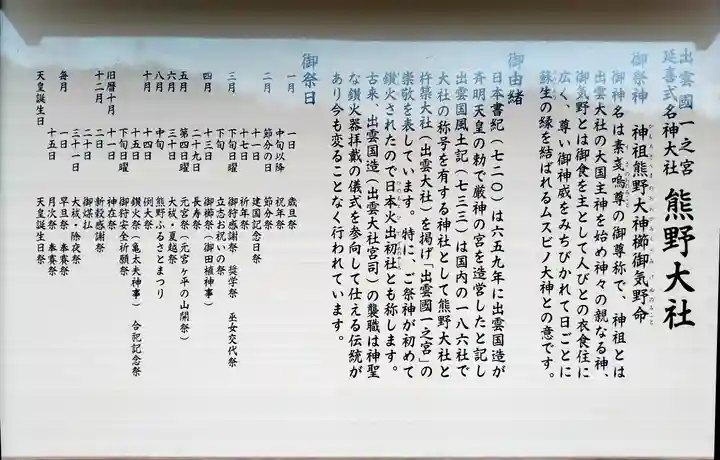 出雲國一之宮
延喜式名神大社
熊野大社
御祭神　神祖熊野大神櫛御気野命
御神名は素戔嗚尊の御尊称で、神祖とは
出雲大社の大国主神を始め神々の親なる神、
御気野とは御食を主として人びとの衣食住に
広く、尊い御神威をみちびかれて日ごとに
蘇生の縁を結ばれるムスビノ大神との意です。
御由緒
日本書紀（七二〇）は六五九年に出雲国造が
斉明天皇の勅で厳神の宮を造営したと記し
出雲国風土記（七三三）は国内の一八六社で
大社の称号を有する神社として熊野大社と
杵築大社（出雲大社）を掲げ「出雲國一之宮」の
崇敬を表しています。特に、ご祭神が初めて
鑽火されたので日本火出初社とも称します。
古来、出雲国造（出雲大社宮司）の襲職は神聖
な鑽火器拝戴の儀式を参向して仕える伝統が
あり今も変ることなく行われています。
御祭日
一月　一日　歳旦祭
中旬以降
二月　節分の日　節分祭
十一日　建国記念日祭
十七日　祈年祭
三月　下旬日曜　御狩感謝祭　奨学祭　巫女交代祭
下旬　立志お祝いの祭
四月　十三日　御櫛祭（御田植神事）
二十九日　長寿祭
五月　第四日曜　元宮祭（元宮ヶ平の山開祭）
六月　三十日　大祓・夏越祭
中旬　熊野ふるさとまつり
十月　十四日　例大祭
十五日　鑽火祭（亀太夫神事）　合祀記念祭
下旬日曜　御狩安全祈願祭
旧暦十月　神在祭
十二月　十日　新穀感謝祭
二十日　御煤払
三十一日　大祓・除夜祭
毎月　一日　早旦祭　奉賽祭
十五日　月次祭　奉賽祭
天皇誕生日　天皇誕生日祭